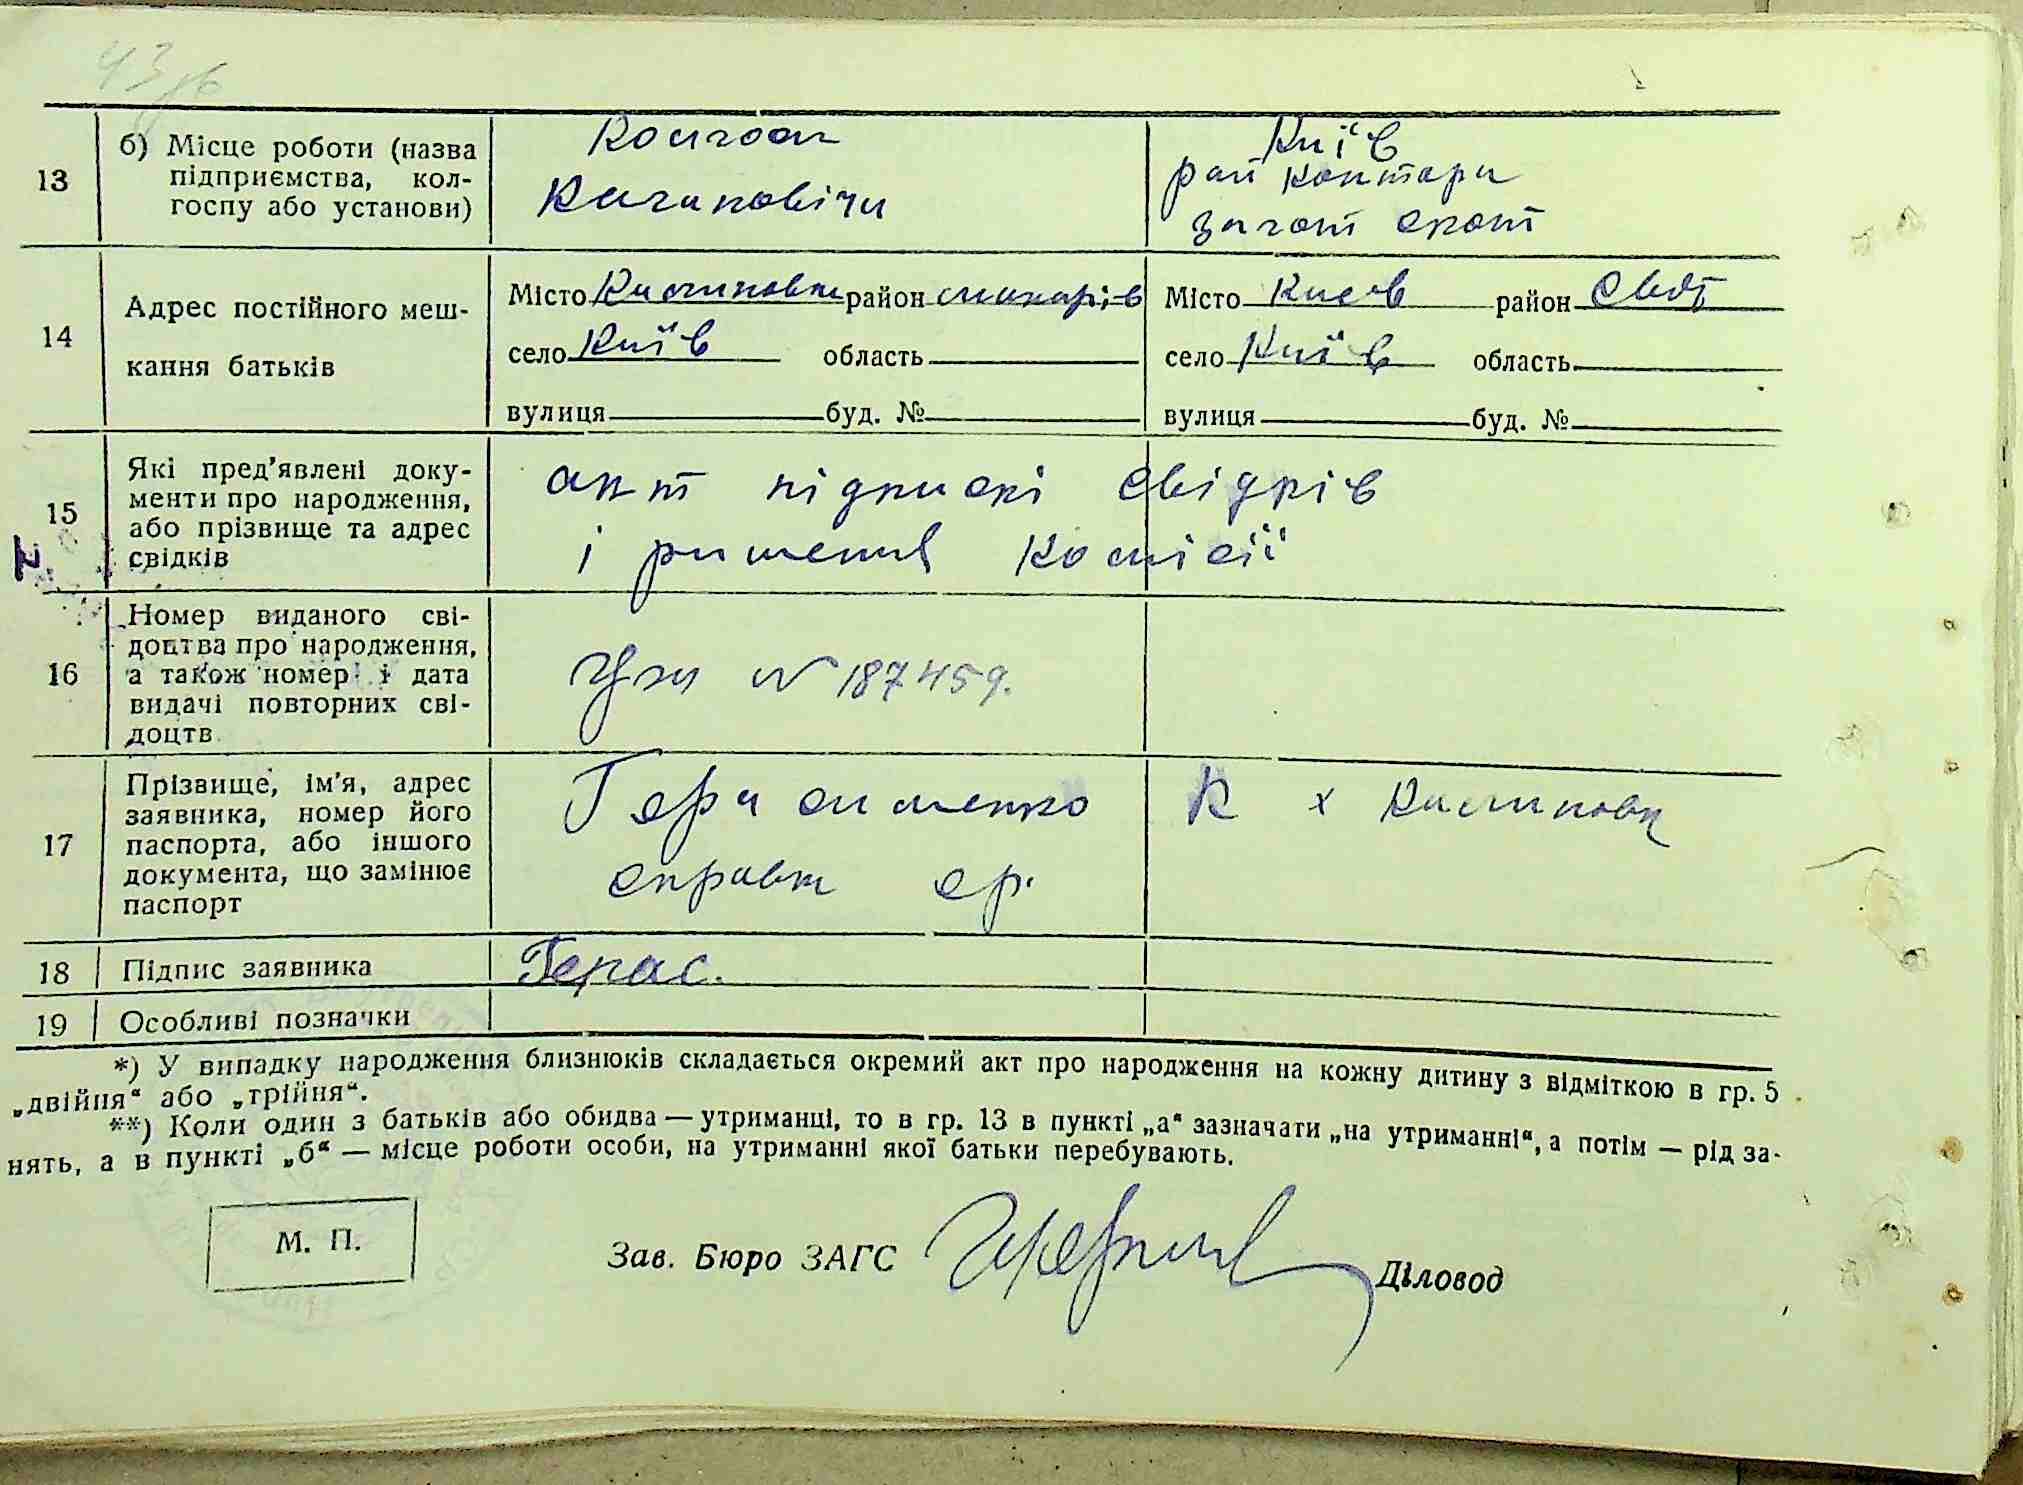 43 зв
13 б) Місце роботи (назва підприємства, колгоспу або установи) Колгосп Кагановічи Київ рай контари загот скот
14 Адрес постійного мешкання батьків
Місто район макарів Місто Киев район Свят
село Київ область село Київ область
вулиця буд. № вулиця буд. №
15 Які пред'явлені документи про народження, або прізвище та адрес свідків
акт підпискі свідків
і ришения комісії
16 Номер виданого свідоцтва про народження, а також номер і дата видачі повторних свідоцтв
N 187459.
17 Прізвище, ім'я, адрес заявника, номер його паспорта, або іншого документа, що замінює паспорт
Герасименко К х
справка ср.
18 Підпис заявника Герас.
19 Особливі позначки
*) У випадку народження близнюків складається окремий акт про народження на кожну дитину з відміткою в гр. 5
„двійня“ або „трійня“.
**) Коли один з батьків або обидва — утриманці, то в гр. 13 в пункті „а“ зазначати „на утриманні“, а потім — рід за-
нять, а в пункті „б“ — місце роботи особи, на утриманні якої батьки перебувають.
М. П.
Зав. Бюро ЗАГС Діловод